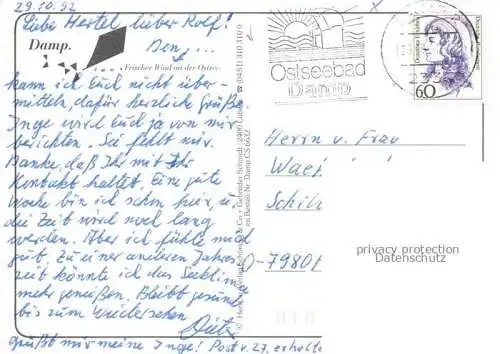 29.10.92
Liebe Hertel, lieber Rolf!
Damp.
Den ...
Frischer Wind an der Ostsee.
kann ich Euch nicht über-
mitteln, dafür herzliche Grüße.
Inge wird Euch ja von mir
berichten. Sie fehlt mir.
Danke, daß Ihr mit Ihr
Kontakt haltet. Eine gute
Woche bin ich schon hier, u.
die Zeit wird noch lang
werden. Aber ich fühle mich
gut. Zu einer anderen Jahres-
zeit könnte ich das Seeklima
mehr genießen. Bleibt gesund
bis zum Wiedersehen
Dietz
Grüßt mir meine Inge! Post v. 27. erhalten
Ostseebad
Damp
Deutsche Bundespost
60
Herrn u. Frau
Schil
D-7980
privacy protection
Datenschutz